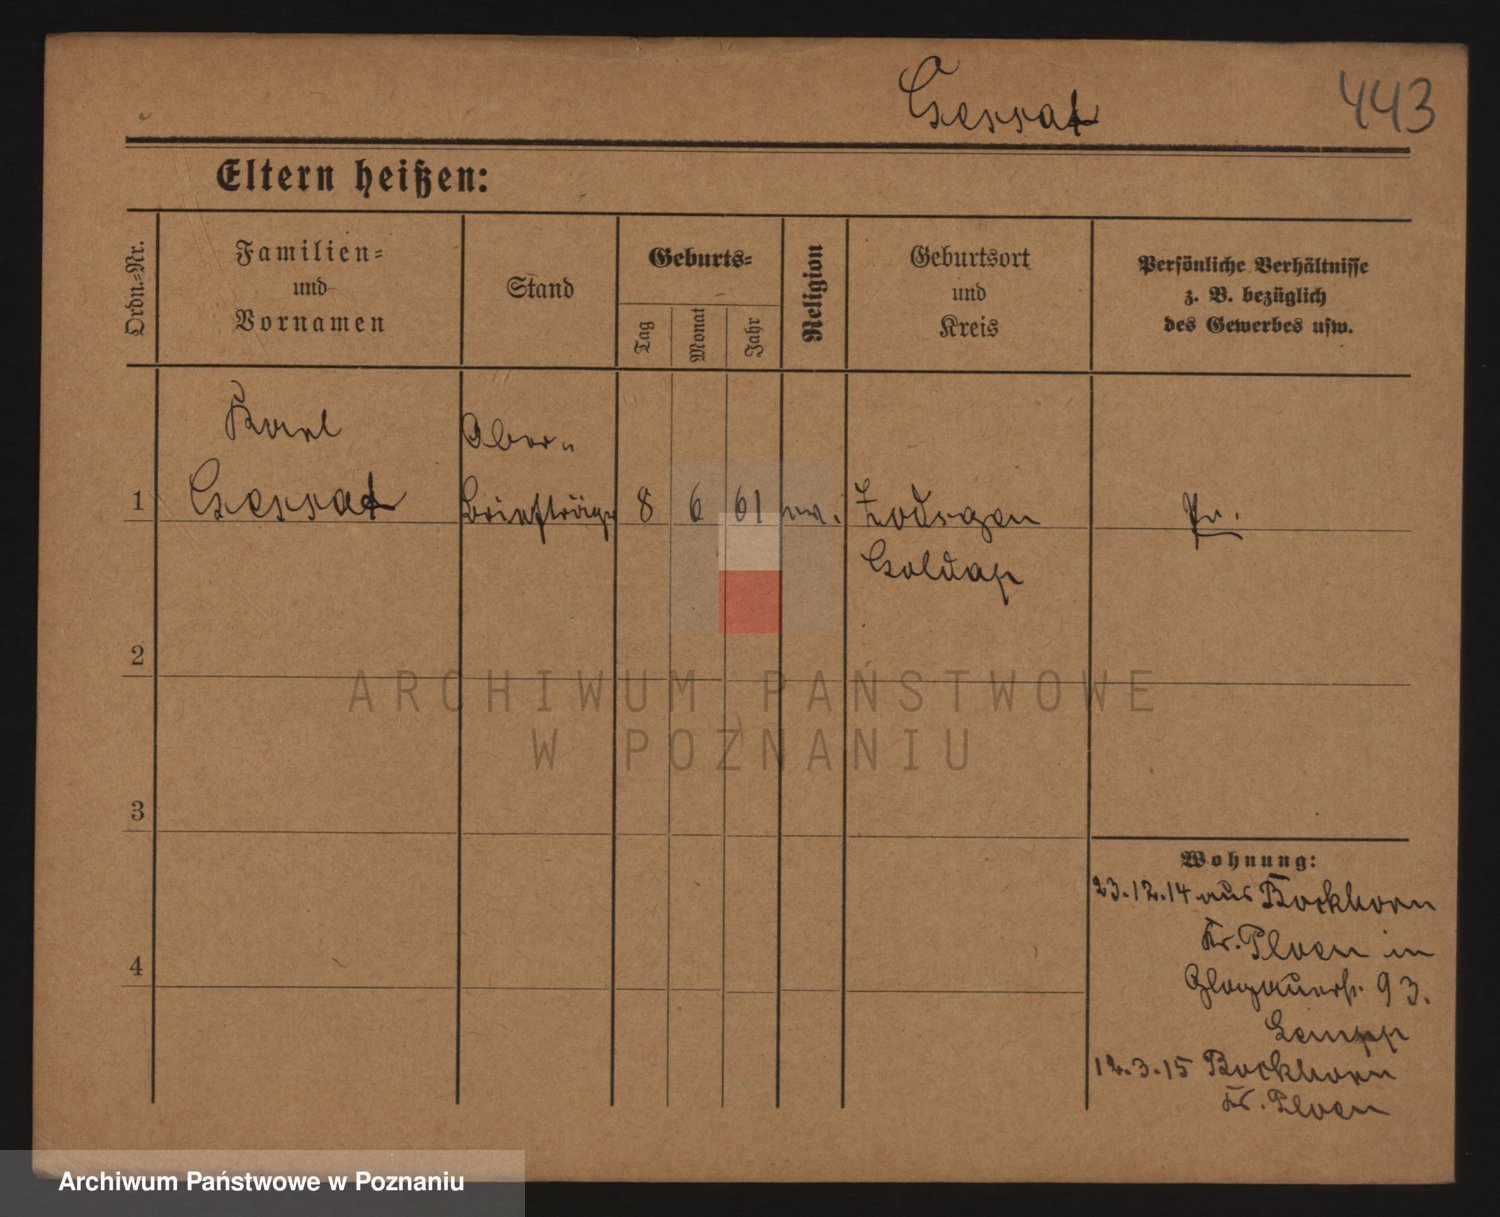 Czessat
443
Eltern heißen:
Ordn.=Nr.
Familien=
und
Vornamen
Stand
Geburts=
Tag
Monat
Jahr
Religion
Geburtsort
und
Kreis
Persönliche Verhältnisse
z. B. bezüglich
des Gewerbes usw.
Karl
Ober-
1
Briefträger
8
6
61
ev.
Pr.
Goldap
2
ARCHIWUM PAŃSTWOWE
W POZNANIU
3
Wohnung:
23.12.14 aus Bockhorn
Kr. Ploen in
Glogauerstr. 93.
12.3.15 Bockhorn
Kr. Ploen
4
Archiwum Państwowe w Poznaniu